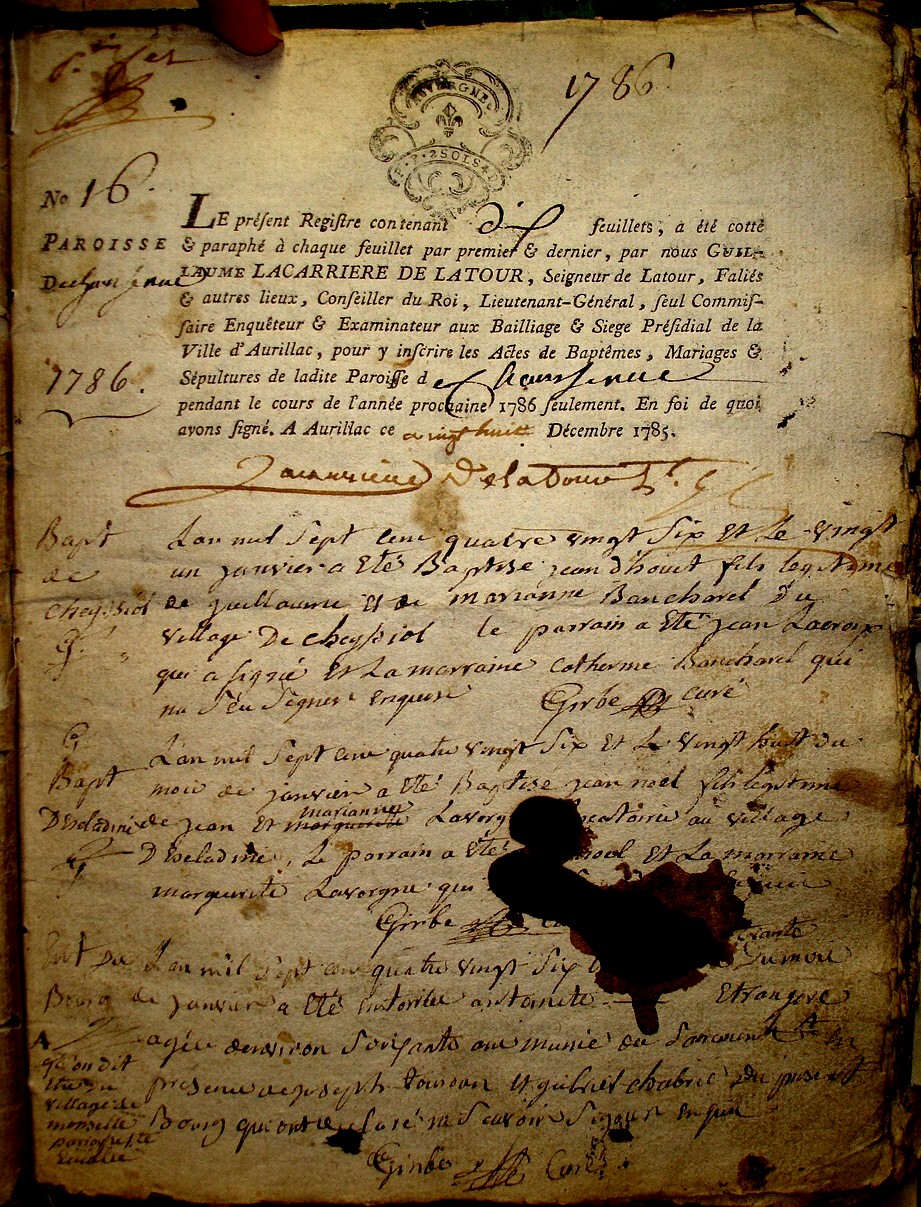 1786
AUVERGNE
2 SOLS
No 16.
PAROISSE
1786.
LE préſent Regiſtre contenant dix feuillets, a été cotté
& paraphé à chaque feuillet par premier & dernier, par nous GUIL-
LAUME LACARRIERE DE LATOUR, Seigneur de Latour, Faliés
& autres lieux, Conſeiller du Roi, Lieutenant-Général, ſeul Commiſ-
ſaire Enquêteur & Examinateur aux Bailliage & Siege Préſidial de la
Ville d'Aurillac, pour y inſcrire les Actes de Baptêmes, Mariages &
Sépultures de ladite Paroiſſe de
pendant le cours de l'année prochaine 1786 ſeulement. En foi de quoi
avons ſigné. A Aurillac ce vingt huit Décembre 1785.
Lacarriere Delatour
Bapt
de
cheyssiol
Lan mil sept cent quatre vingt six et le vingt
un janvier a eté Baptise jean d'houet fils legitime
de guillaume et de marianne Bancharel du
village De cheyssiol le parrain a eté jean Lacroix
qui a signé et La marraine catherine Bancharel qui
na sçu signer enquise Girbe curé
Bapt
D'Escladine
L'an mil sept cent quatre vingt six et le vingt huit du
mois de janvier a eté Baptise jean noel fils legitime
marianne
de jean et marguerite Lavergne au village
D'Escladine, Le parrain a eté noel et La marraine
marguerite Lavergne qui
Girbe
Ent du
Bourg
L'an mil sept cent quatre vingt six trante du mois
de janvier a eté enterrée antoinete etrangere
agée denviron soixante ans munie des sacrements A en
presence de joseph et gabriel chabrie du present
Bourg qui ont declaré ne scavoir signer
Girbe Curé
A
qu'on dit
etre du
village de